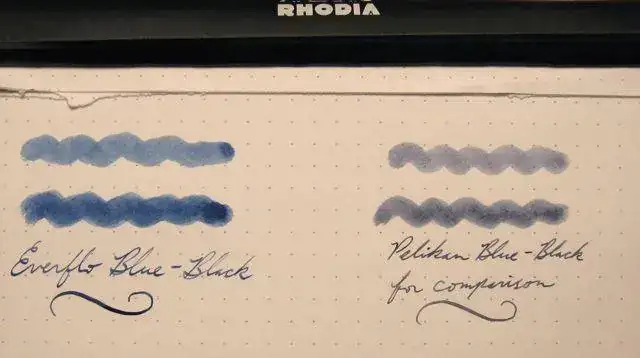 RHODIA
Everflo Blue-Black
Pelikan Blue-Black
for comparison